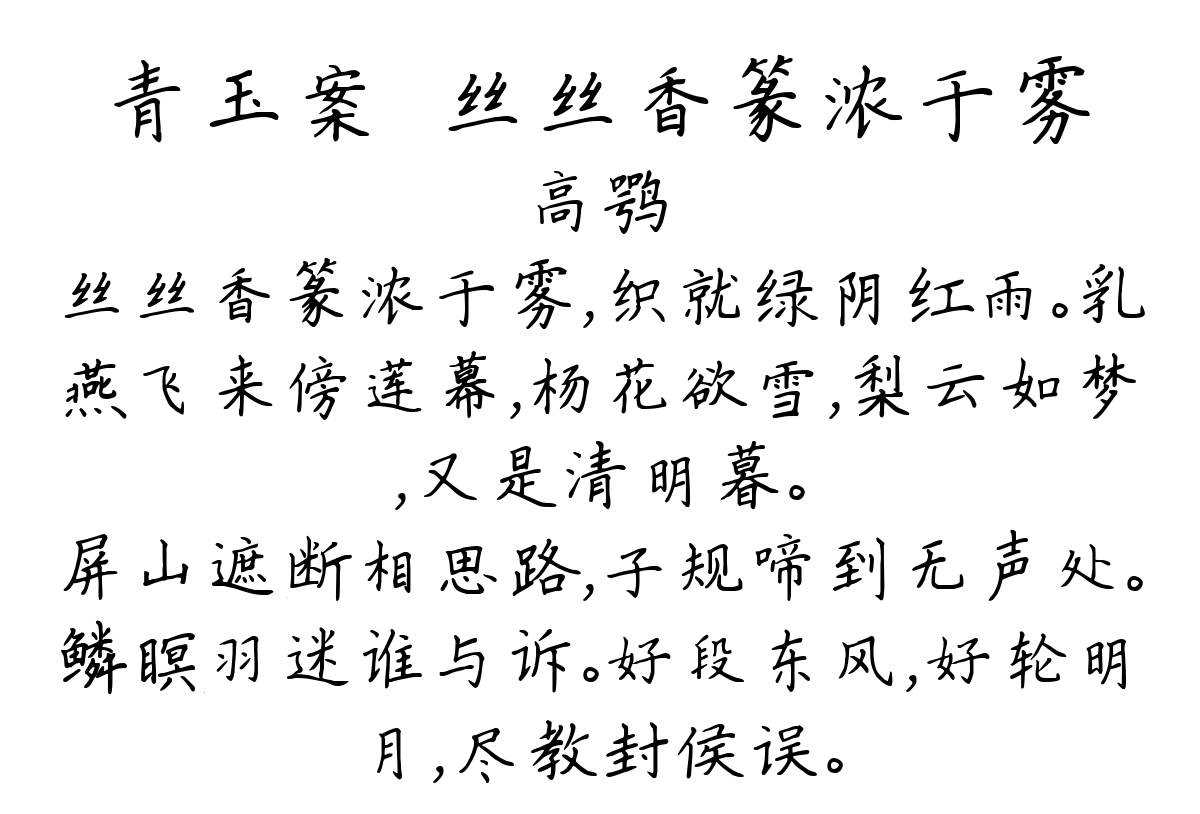 青玉案 丝丝香篆浓于雾
高鹗
丝丝香篆浓于雾,织就绿阴红雨。乳
燕飞来傍莲幕,杨花欲雪,梨云如梦
,又是清明暮。
屏山遮断相思路,子规啼到无声处。
鳞瞑羽迷谁与诉。好段东风,好轮明
月,尽教封侯误。